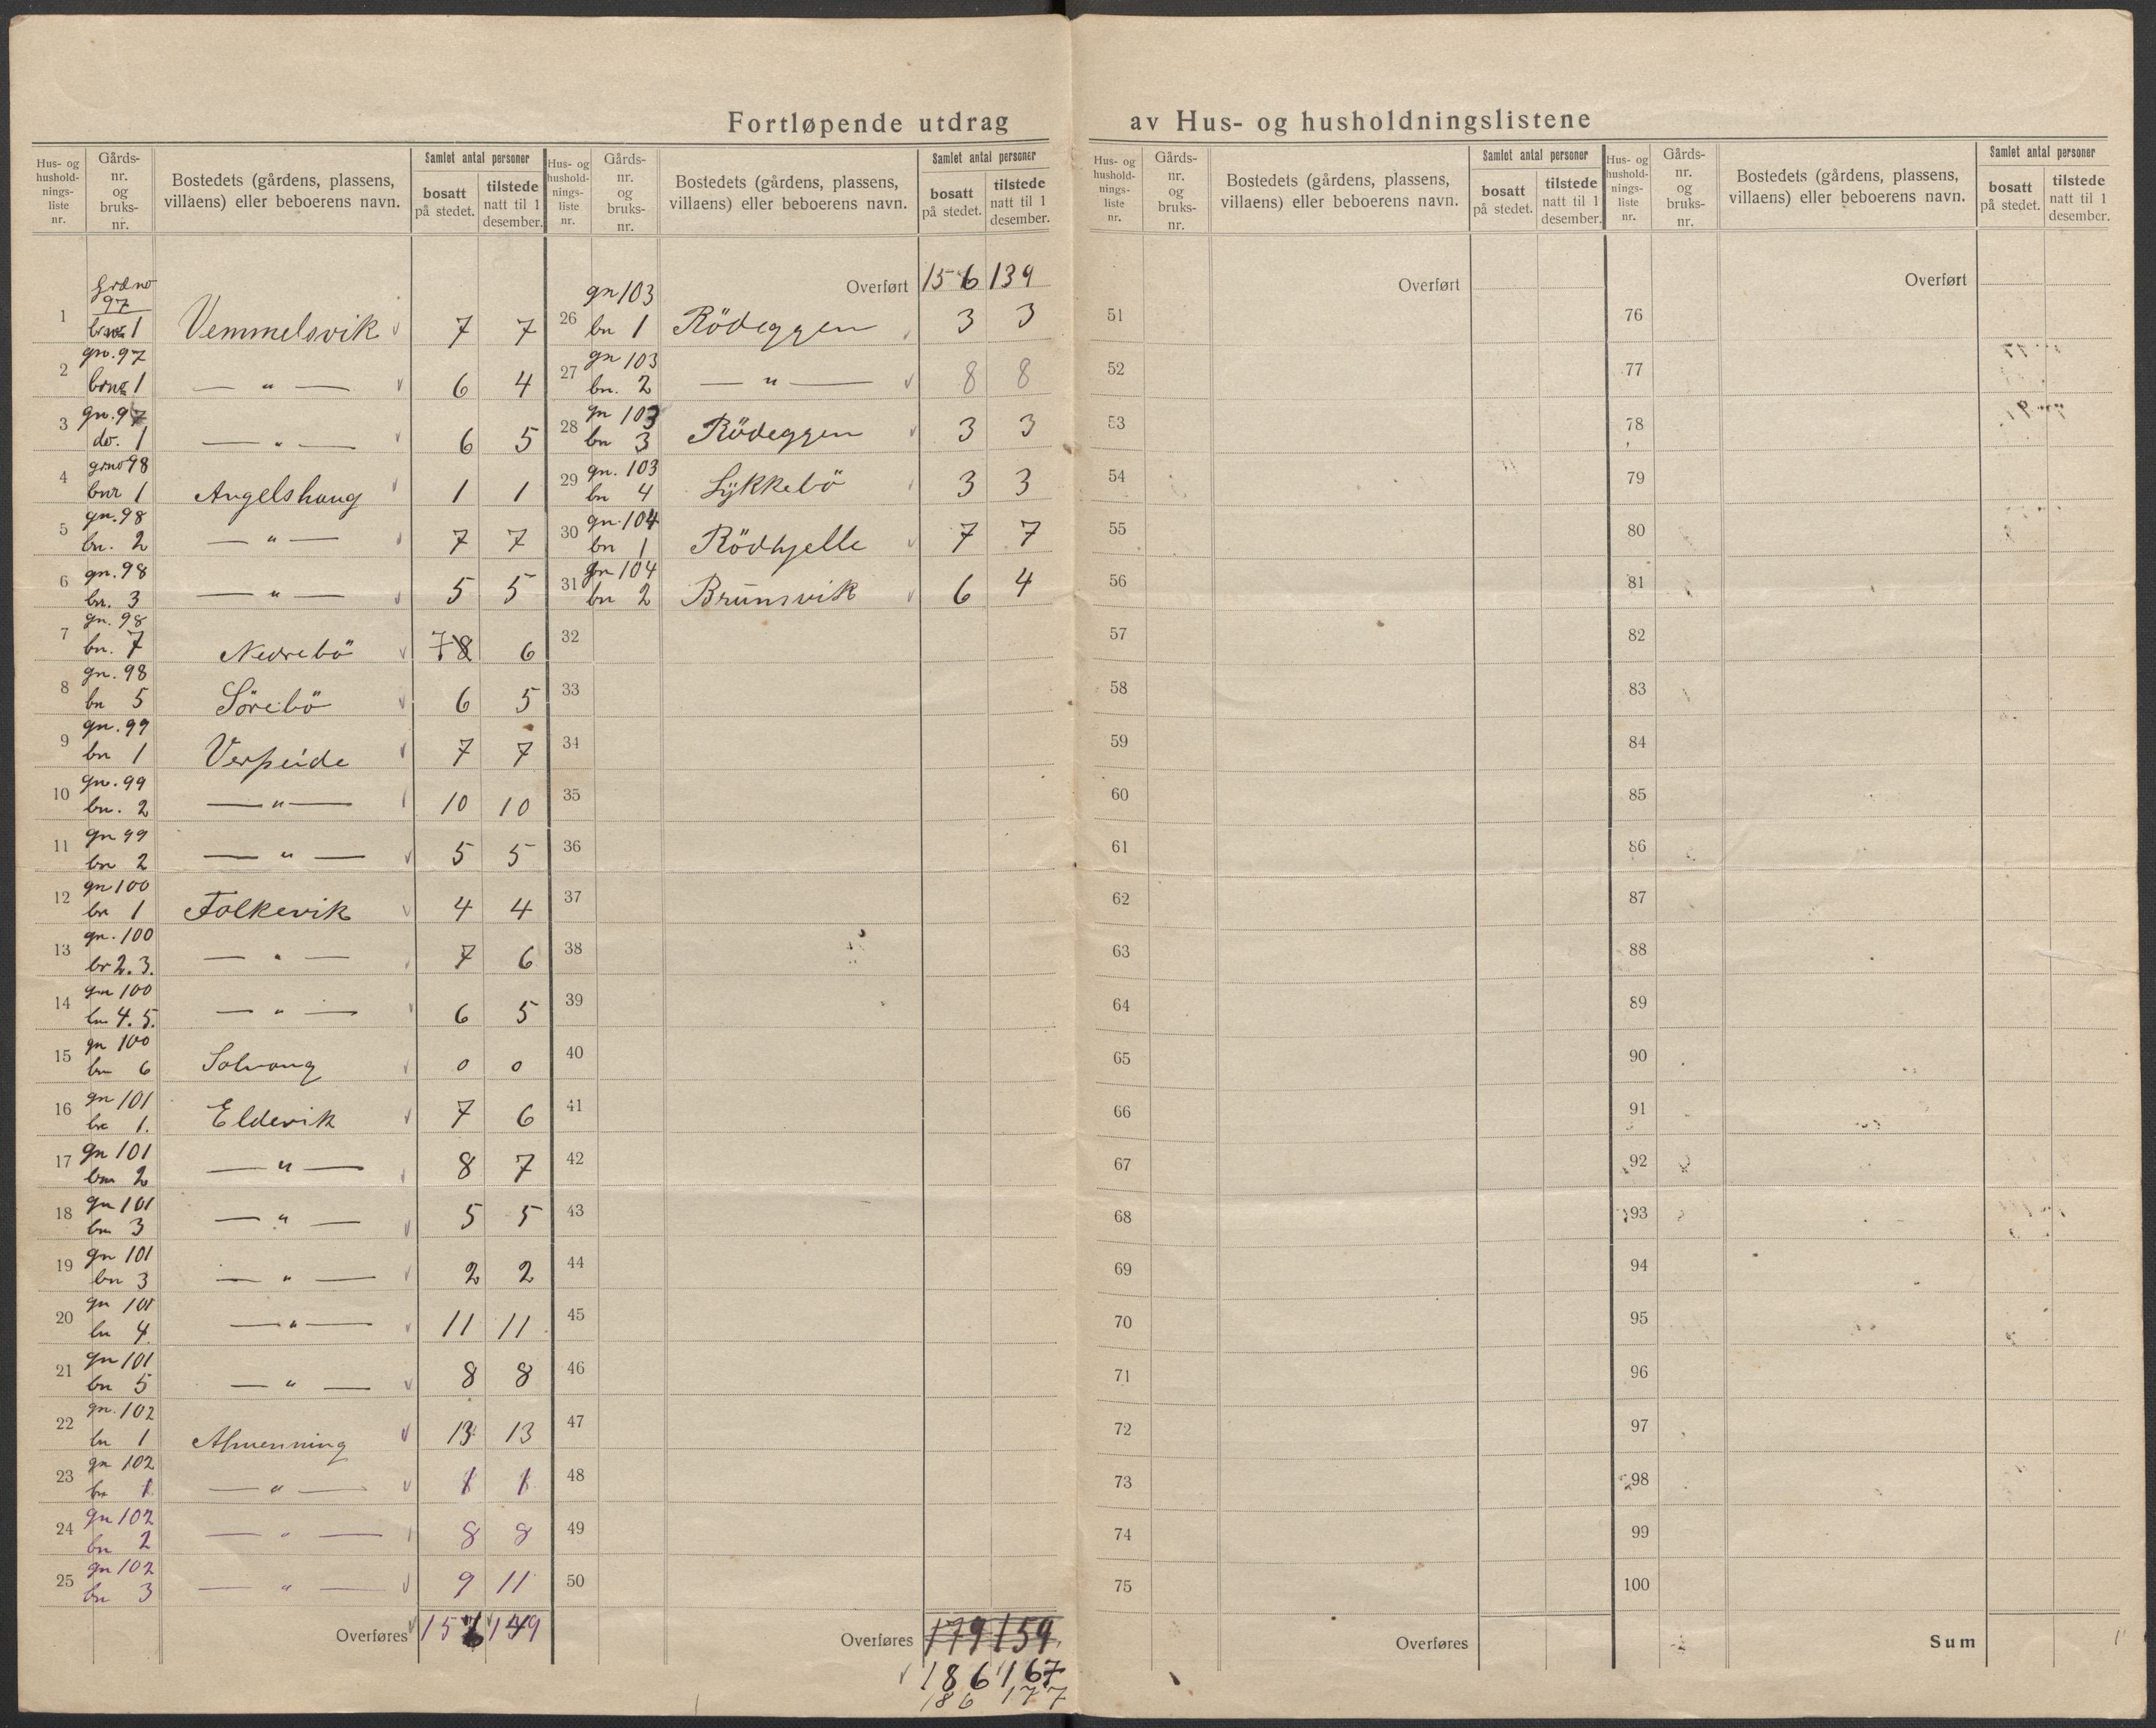 Fortløpende utdrag av Hus- og husholdningslistene
Hus- og hushold-nings-liste nr. Gårds-nr. og bruks-nr. Bostedets (gårdens, plassens, villaens) eller beboerens navn. Samlet antal personer bosatt på stedet. tilstede natt til 1 desember.
Hus- og hushold-nings-liste nr. Gårds-nr. og bruks-nr. Bostedets (gårdens, plassens, villaens) eller beboerens navn. Samlet antal personer bosatt på stedet. tilstede natt til 1 desember.
Hus- og hushold-nings-liste nr. Gårds-nr. og bruks-nr. Bostedets (gårdens, plassens, villaens) eller beboerens navn. Samlet antal personer bosatt på stedet. tilstede natt til 1 desember.
Hus- og hushold-nings-liste nr. Gårds-nr. og bruks-nr. Bostedets (gårdens, plassens, villaens) eller beboerens navn. Samlet antal personer bosatt på stedet. tilstede natt til 1 desember.
1 97 1 Vemmelsvik 7 7
2 gn. 97 1 — " — 6 4
3 gn. 97 do. 1 — " — 6 5
4 grno 98 bnr 1 Angelshaug 1 1
5 gn. 98 bn. 2 — " — 7 7
6 gn. 98 bn. 3 — " — 5 5
7 gn. 98 bn. 7 Nedrebö 78 6
8 gn. 98 bn 5 Sörebö 6 5
9 gn. 99 bn 1 Verpeide 7 7
10 gn. 99 bn. 2 — " — 10 10
11 gn 99 bn 2 — " — 5 5
12 gn 100 bn 1 Folkevik 4 4
13 gn. 100 br 2. 3. — " — 7 6
14 gn 100 bn 4. 5. — " — 6 5
15 gn 100 bn 6 Solvang 0 0
16 gn 101 bn 1. Eldevik 7 6
17 gn 101 bn 2 — " — 8 7
18 gn 101 bn 3 — " — 5 5
19 gn 101 bn 3 — " — 2 2
20 gn 101 bn 4. — " — 11 11
21 gn 101 bn 5 — " — 8 8
22 gn. 102 bn 1 Almenning 13 13
23 gn 102 bn 1 — " — 1 1
24 gn 102 bn 2 — " — 8 8
25 gn 102 bn 3 — " — 9 11
Overføres 149
Overført 156 139
26 gn 103 bn 1 Rödeggen 3 3
27 gn 103 bn. 2 — " — 8 8
28 gn 103 bn 3 Rödeggen 3 3
29 gn. 103 bn 4 Lykkebö 3 3
30 gn. 104 bn 1 Rödhjelle 7 7
31 gn 104 bn 2 Brunsvik 6 4
32
33
34
35
36
37
38
39
40
41
42
43
44
45
46
47
48
49
50
Overføres 179 159
186 167
186 177
Overført
51
52
53
54
55
56
57
58
59
60
61
62
63
64
65
66
67
68
69
70
71
72
73
74
75
Overføres
Overført
76
77
78
79
80
81
82
83
84
85
86
87
88
89
90
91
92
93
94
95
96
97
98
99
100
Sum